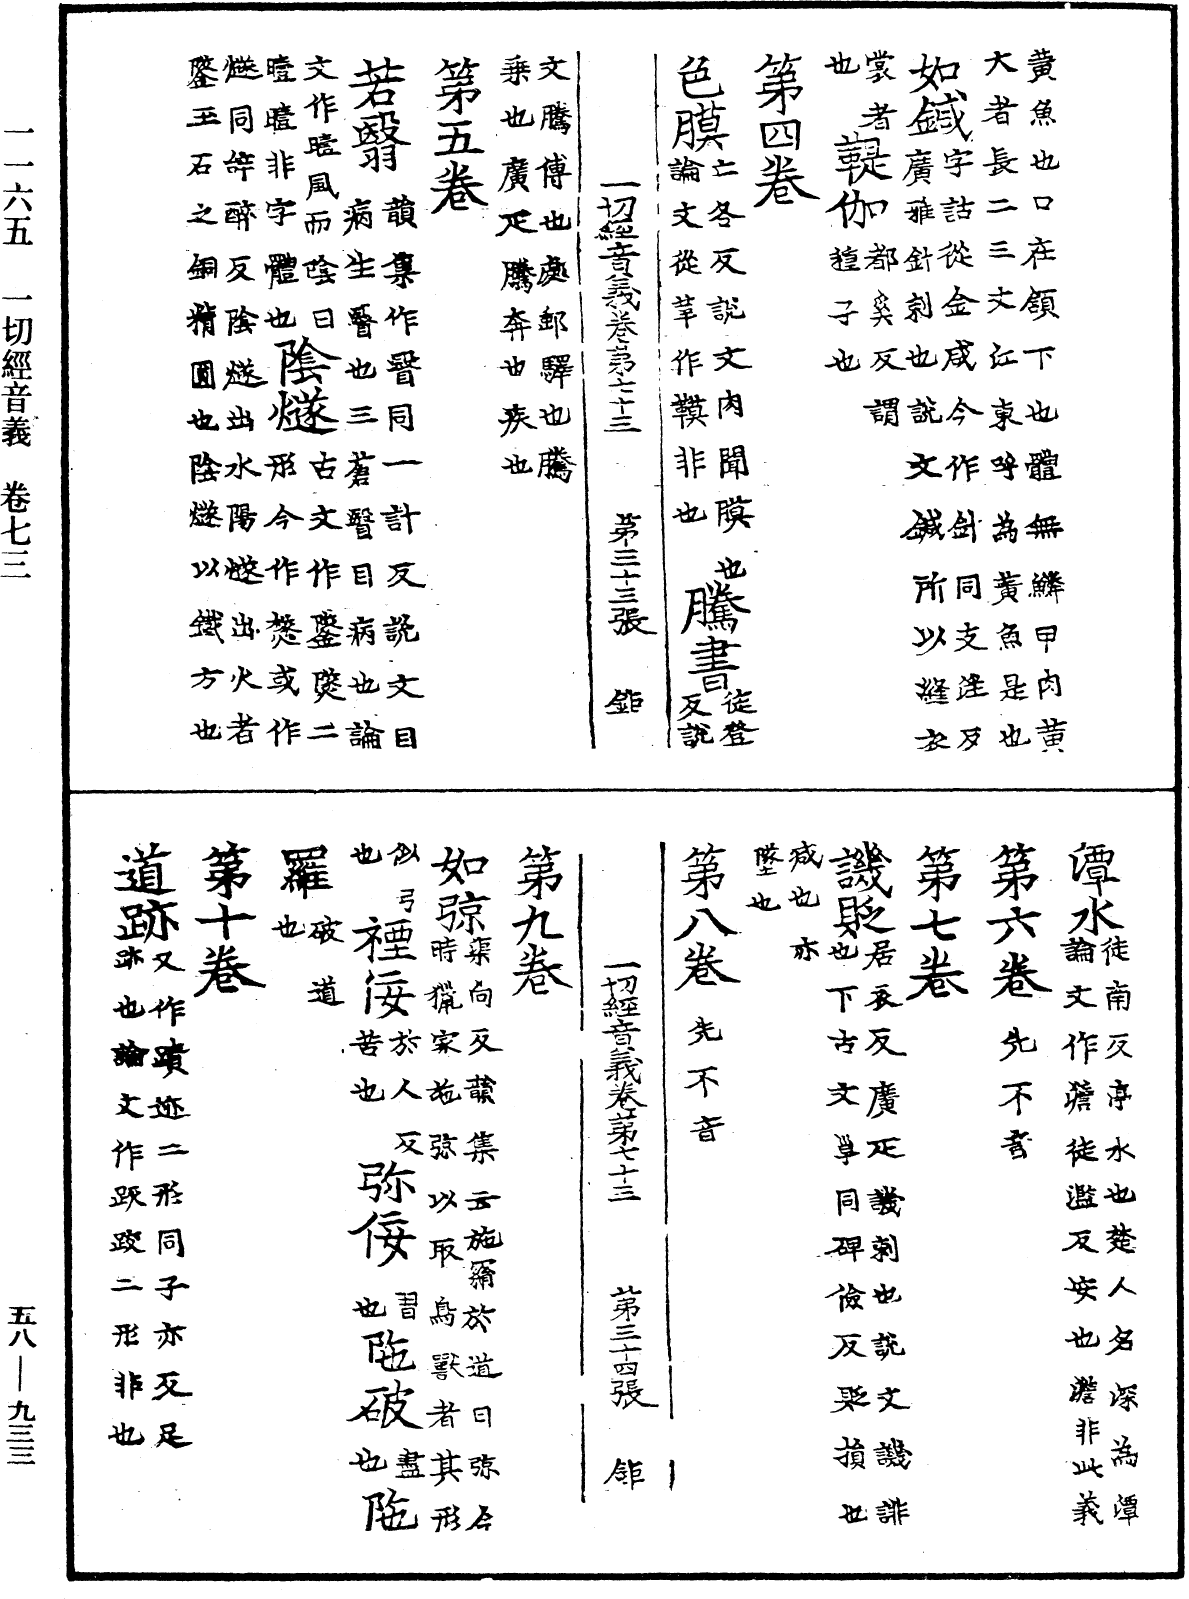 一一六五　一切經音義　卷七三
黃魚也口在頷下也體無鱗甲肉黃
大者長二三丈江東呼為黃魚是也
如鍼字詁從金咸今作針同支淫反
廣雅針刺也說文鍼所以縫衣
裳者也 鞮伽都奚反謂
䵎子也
第四卷
色膜亡各反說文肉閒膜也
論文從革作鞹非也 騰書徒登
反說
一切經音義卷第七十三　第三十三張　鉅
文騰傳也處郵驛也騰
乘也廣疋騰奔也疾也
第五卷
若瞖韻集作瞖同一計反說文目
病生瞖也三蒼瞖目病也論
文作曀風而陰曰
曀曀非字體也 陰燧古文作鐆㸂二
形今作㷭或作
燧同辝醉反陰燧出水陽燧出火者
鐆玉石之銅精圓也陰燧以鐵方也
潭水徒南反亭水也楚人名深為潭
論文作澹徒濫反安也澹非此義
第六卷先不音
第七卷
譏貶居衣反廣疋譏刺也說文譏誹
也下古文㝵同碑儉反貶損也
減也亦
墜也
第八卷先不音
一切經音義卷第七十三　第三十四張　鉅
第九卷
如弶渠向反韻集云施罥於道曰弶今
時獵家施弶以取鳥獸者其形
似弓
也 禋佞於人反
苦也 弥佞習
也 陁破盡
也 陁
羅破道
也
第十卷
道跡又作蹟迹二形同子亦反足
跡也論文作跃跤二形非也
五八—九三三